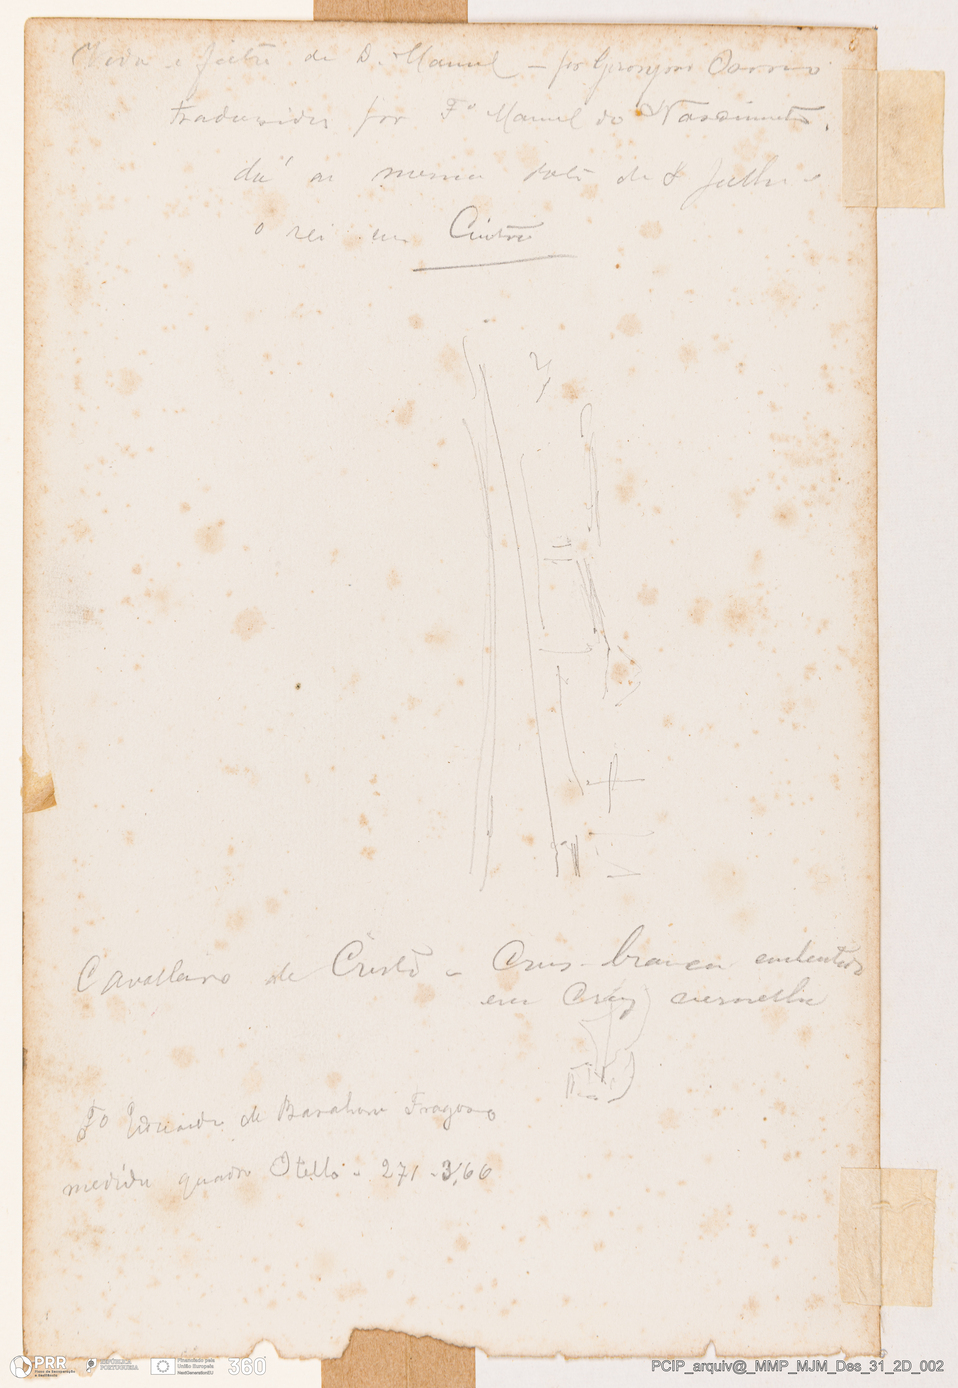 Vida e feitos de D. Manuel – por Geronymo Osorio
traduzida por Fº Manuel do Nascimento,
dá a mesma data de 8 Julho e
o rei em Cintra
Cavalleiro de Cristo – Cruz branca
em Cruz vermelha
Fº de Barahona Fragoso
medida quadro Otello – 271 – 3,66
PRR
REPÚBLICA
PORTUGUESA
Financiado pela
União Europeia
NextGenerationEU
360
PCIP_arquiv@_MMP_MJM_Des_31_2D_002